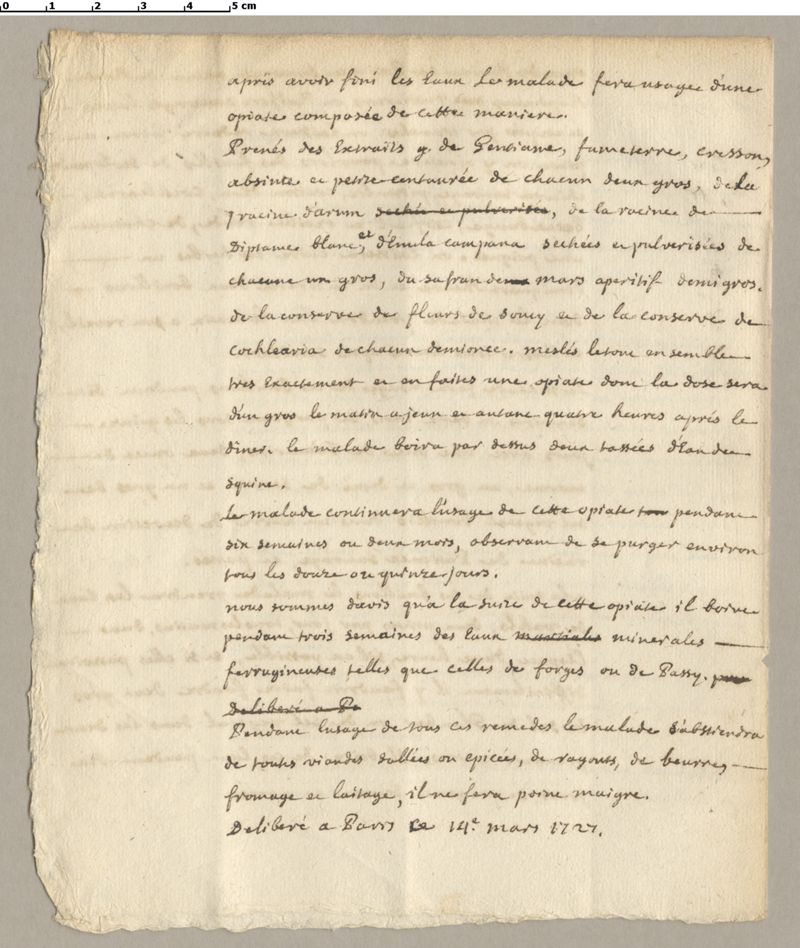 0 1 2 3 4 5 cm
après avoir fini les Eaux Le malade fera usage d'une
opiate composée de cette maniere.
Prenés des Extraits de Gentiane, fumeterre, cresson,
absinte et petite centaurée de chacun deux gros, de La
racine d'arum sechée et pulverisée, de la racine de
Diptame blanc, et d'Enula campana sechées et pulverisées de
chacune un gros, du safran de mars aperitif demi gros.
de la conserve de fleurs de soucy et de la conserve de
Cochlearia de chacun demi once. meslés le tout ensemble
tres Exactement et en faites une opiate dont la dose sera
d'un gros le matin a jeun et autant quatre heures aprés le
diner. le malade boira par dessus deux tassées d'Eau de
squine.
Le malade continuera l'usage de cette opiate pendant
six semaines ou deux mois, observant de se purger environ
tous les douze ou quinze jours.
nous sommes d'avis qu'a la suite de cette opiate il boive
pendant trois semaines des Eaux martiales minerales
ferrugineuses telles que celles de forges ou de Passy. pour
Deliberé a Pa
Pendant l'usage de tous ces remedes le malade s'abstiendra
de toutes viandes sallées ou epicées, de ragouts, de beurre,
fromage et laitage, il ne fera point maigre.
Deliberé a Paris ce 14e mars 1727.